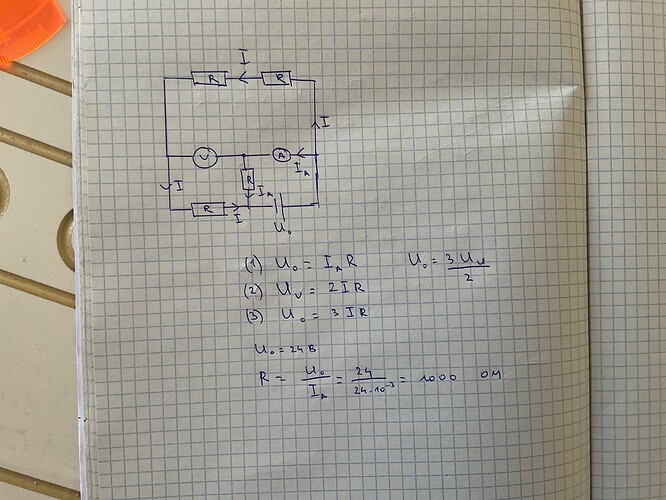 I
R R
I
V A
I_A
R
I I_A
R
I
U₀
(1) U₀ = I_A R U₀ = 3 U_V / 2
(2) U_V = 2 I R
(3) U₀ = 3 I R
U₀ = 24 В
R = U₀ / I_A = 24 / 24·10⁻³ = 1000 ОМ